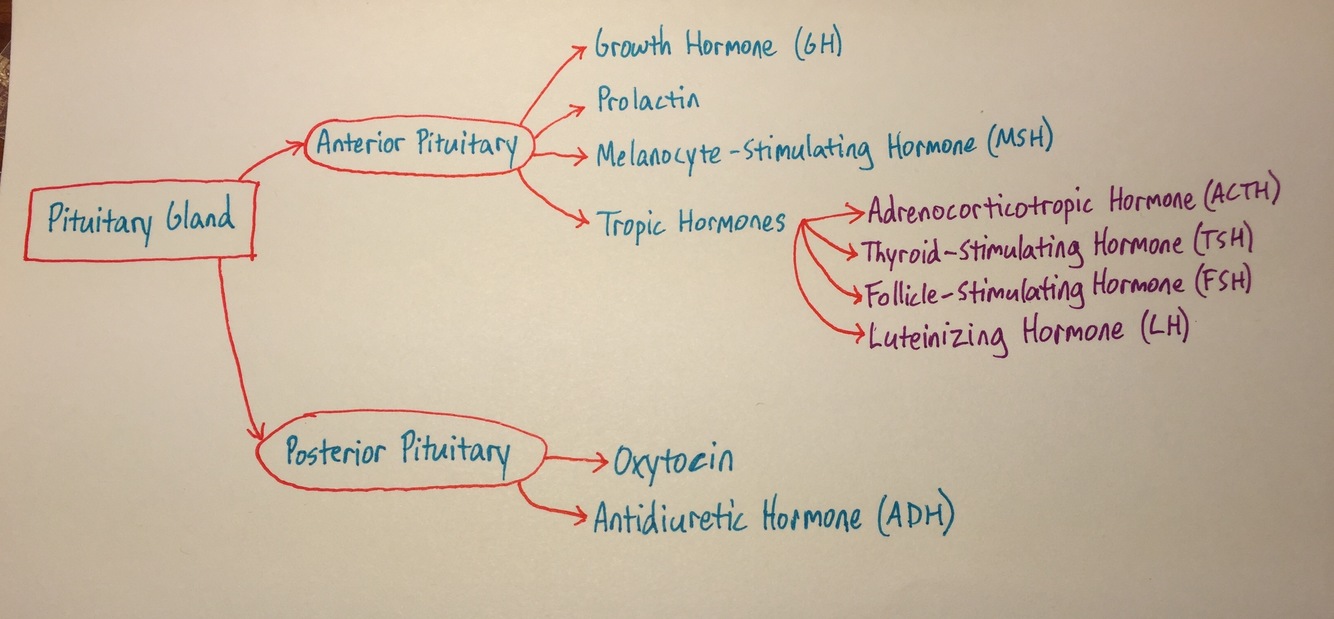 Growth Hormone (GH)
Prolactin
Anterior Pituitary
Melanocyte-Stimulating Hormone (MSH)
Pituitary Gland
Tropic Hormones
Adrenocorticotropic Hormone (ACTH)
Thyroid-Stimulating Hormone (TSH)
Follicle-Stimulating Hormone (FSH)
Luteinizing Hormone (LH)
Posterior Pituitary
Oxytocin
Antidiuretic Hormone (ADH)